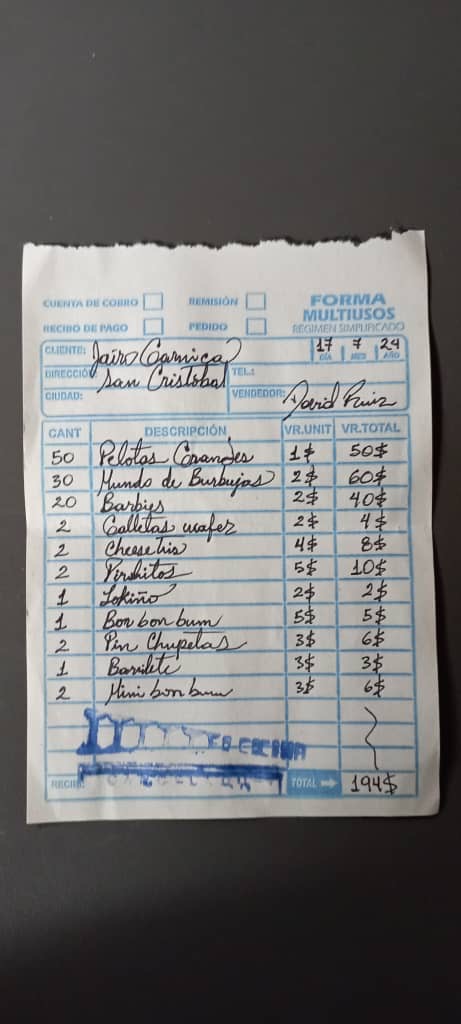 CUENTA DE COBRO REMISIÓN FORMA
MULTIUSOS
RECIBO DE PAGO PEDIDO RÉGIMEN SIMPLIFICADO
CLIENTE: Jairo Carnica 17 7 24
DÍA MES AÑO
DIRECCIÓ San Cristobal TEL.:
CIUDAD: VENDEDOR: David Ruiz
CANT DESCRIPCIÓN VR.UNIT VR.TOTAL
50 Pelotas Grandes 1$ 50$
30 Mundo de Burbujas 2$ 60$
20 Barbies 2$ 40$
2 Galletas wafer 2$ 4$
2 Cheese tris 4$ 8$
2 Pirulitos 5$ 10$
1 Lokiño 2$ 2$
1 Bon bon bum 5$ 5$
2 Pin Chupetas 3$ 6$
1 Barrilete 3$ 3$
2 Mini bon bum 3$ 6$
RECIBÍ: TOTAL 194$